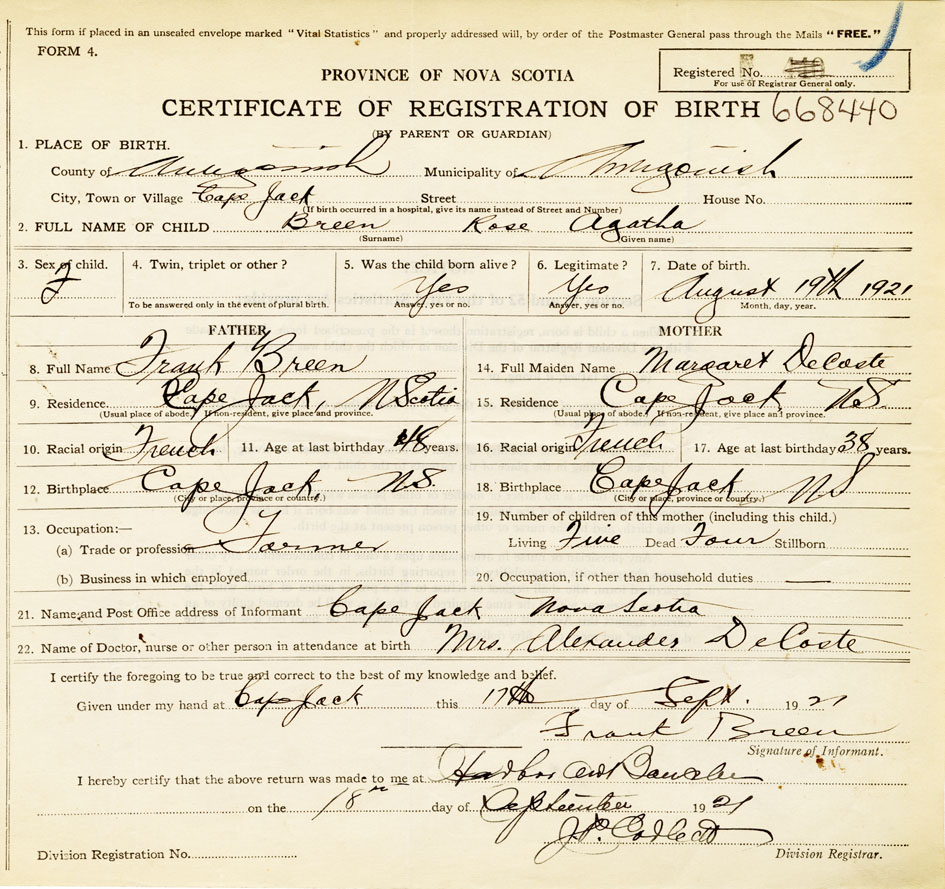 This form if placed in an unsealed envelope marked "Vital Statistics" and properly addressed will, by order of the Postmaster General pass through the Mails "FREE."
FORM 4.
Registered No.
For use of Registrar General only.
PROVINCE OF NOVA SCOTIA
CERTIFICATE OF REGISTRATION OF BIRTH 668440
(BY PARENT OR GUARDIAN)
1. PLACE OF BIRTH.
County of Antigonish Municipality of Antigonish
City, Town or Village Cape Jack Street House No.
(If birth occurred in a hospital, give its name instead of Street and Number)
2. FULL NAME OF CHILD Breen Rose Agatha
(Surname) (Given name)
3. Sex of child. F 4. Twin, triplet or other? 5. Was the child born alive? 6. Legitimate? 7. Date of birth.
Yes Yes August 19th 1921
To be answered only in the event of plural birth. Answer, yes or no. Answer, yes or no. Month, day, year.
FATHER
8. Full Name Frank Breen
9. Residence. Cape Jack, N Scotia
(Usual place of abode. If non-resident, give place and province.)
10. Racial origin French 11. Age at last birthday 48 years.
12. Birthplace Cape Jack, N.S.
(City or place, province or country.)
13. Occupation:—
(a) Trade or profession Farmer
(b) Business in which employed
MOTHER
14. Full Maiden Name Margaret DeCoste
15. Residence Cape Jack N.S.
(Usual place of abode. If non-resident, give place and province.)
16. Racial origin French 17. Age at last birthday 38 years.
18. Birthplace Cape Jack, NS
(City or place, province or country.)
19. Number of children of this mother (including this child.)
Living Five Dead Four Stillborn
20. Occupation, if other than household duties —
21. Name and Post Office address of Informant Cape Jack Nova Scotia
22. Name of Doctor, nurse or other person in attendance at birth Mrs. Alexander DeCoste
I certify the foregoing to be true and correct to the best of my knowledge and belief.
Given under my hand at Cape Jack this 17th day of Sept. 1921
Frank Breen
Signature of Informant.
I hereby certify that the above return was made to me at Harbor
on the 18 day of September 1921
Division Registration No. Division Registrar.